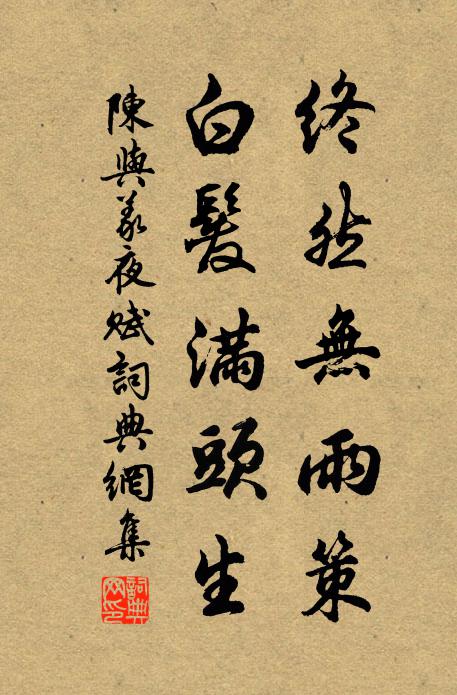 終然無雨策
白髮滿頭生
陳與義夜賦詞典網集
詞典網印